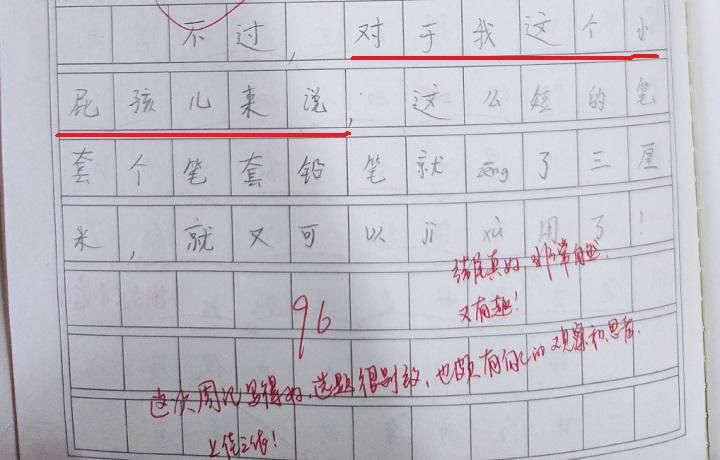 不过，对于我这个小
屁孩儿来说，这么短的笔
套个笔套铅笔就zēng了三厘
米，就又可以jì xù用了！
结尾真好，非常自然
又有趣！
96
这次周记写得好，选题很别致，也颇有你的观察和思考，
上传之佳！